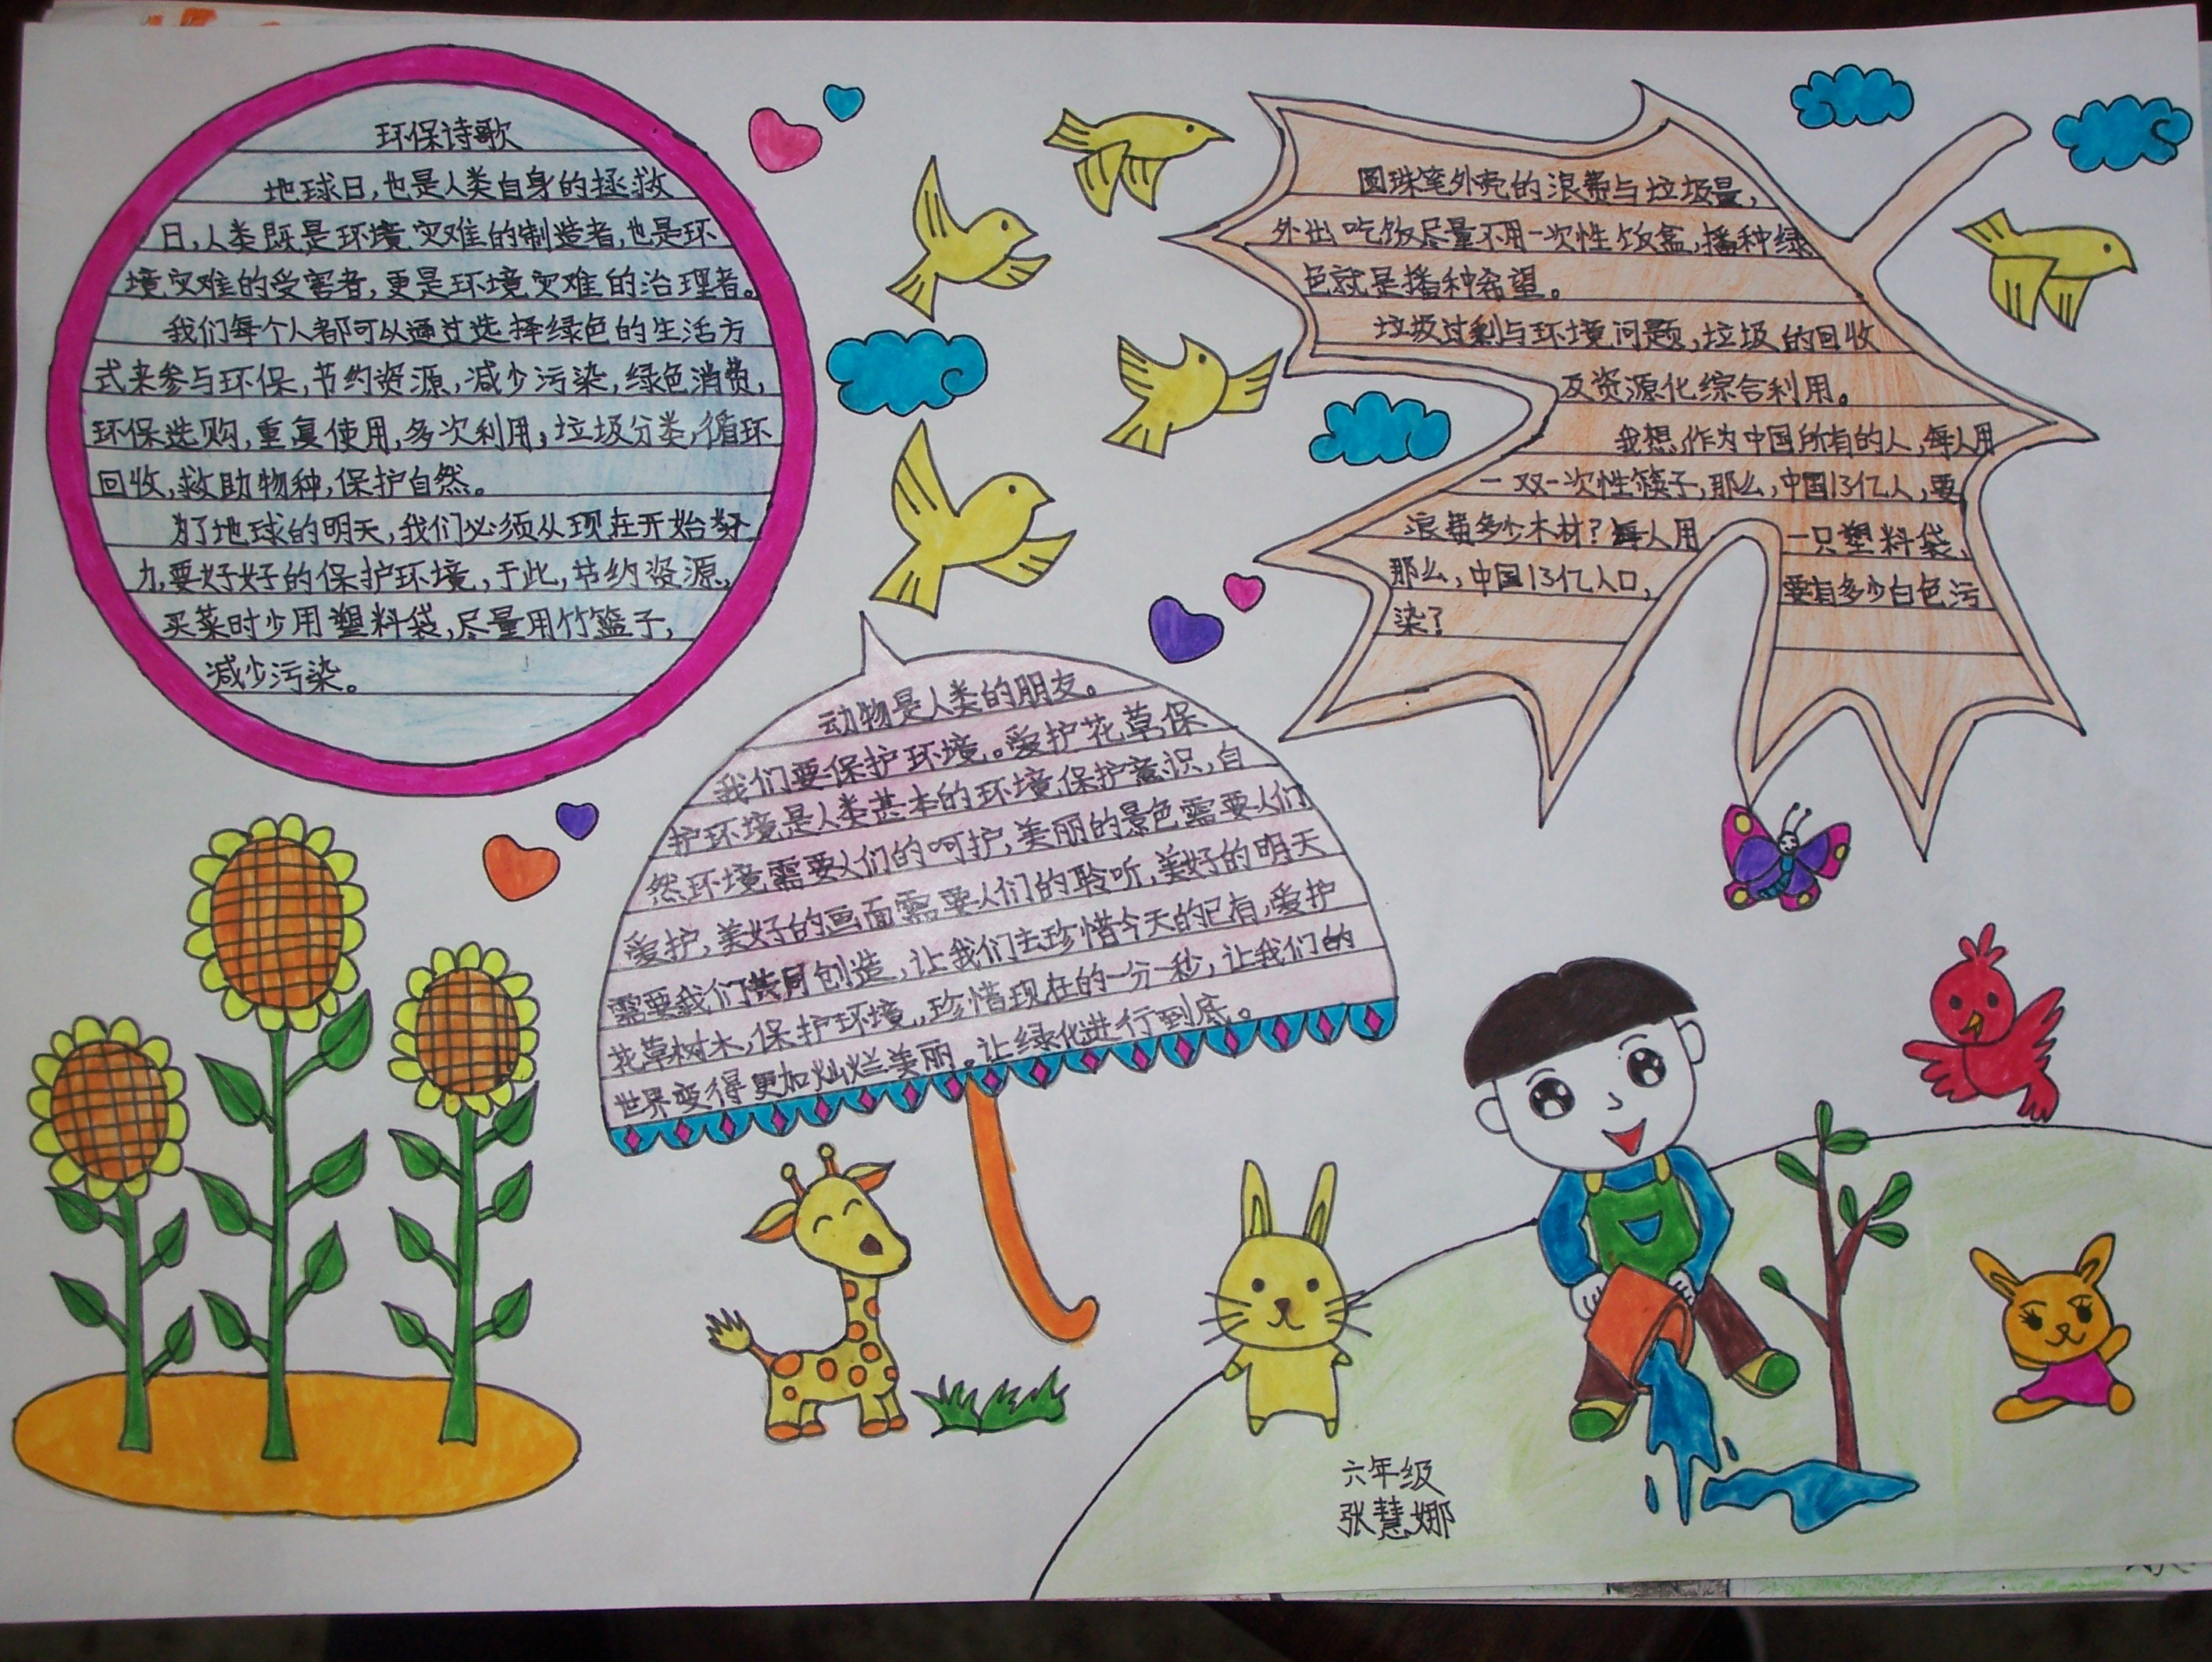 环保诗歌
地球日,也是人类自身的拯救
日,人类既是环境灾难的制造者,也是环
境灾难的受害者,更是环境灾难的治理者。
我们每个人都可以通过选择绿色的生活方
式来参与环保,节约资源,减少污染,绿色消费,
环保选购,重复使用,多次利用,垃圾分类,循环
回收,救助物种,保护自然。
为了地球的明天,我们必须从现在开始努
力,要好好的保护环境,于此,节约资源,
买菜时少用塑料袋,尽量用竹篮子,
减少污染。
动物是人类的朋友。
我们要保护环境。爱护花草,保
护环境是人类基本的环境保护意识,自
然环境需要人们的呵护,美丽的景色需要人们
爱护,美好的画面需要人们的聆听,美好的明天
需要我们共同创造,让我们去珍惜今天的已有,爱护
花草树木,保护环境,珍惜现在的一分一秒,让我们的
世界变得更加灿烂美丽。让绿化进行到底。
圆珠笔外壳的浪费与垃圾量,
外出吃饭尽量不用一次性饭盒,播种绿
色就是播种希望。
垃圾过剩与环境问题,垃圾的回收
及资源化综合利用。
我想,作为中国所有的人,每人用
一双一次性筷子,那么,中国13亿人,要
浪费多少木材?每人用一只塑料袋,
那么,中国13亿人口,要有多少白色污
染?
六年级
张慧娜